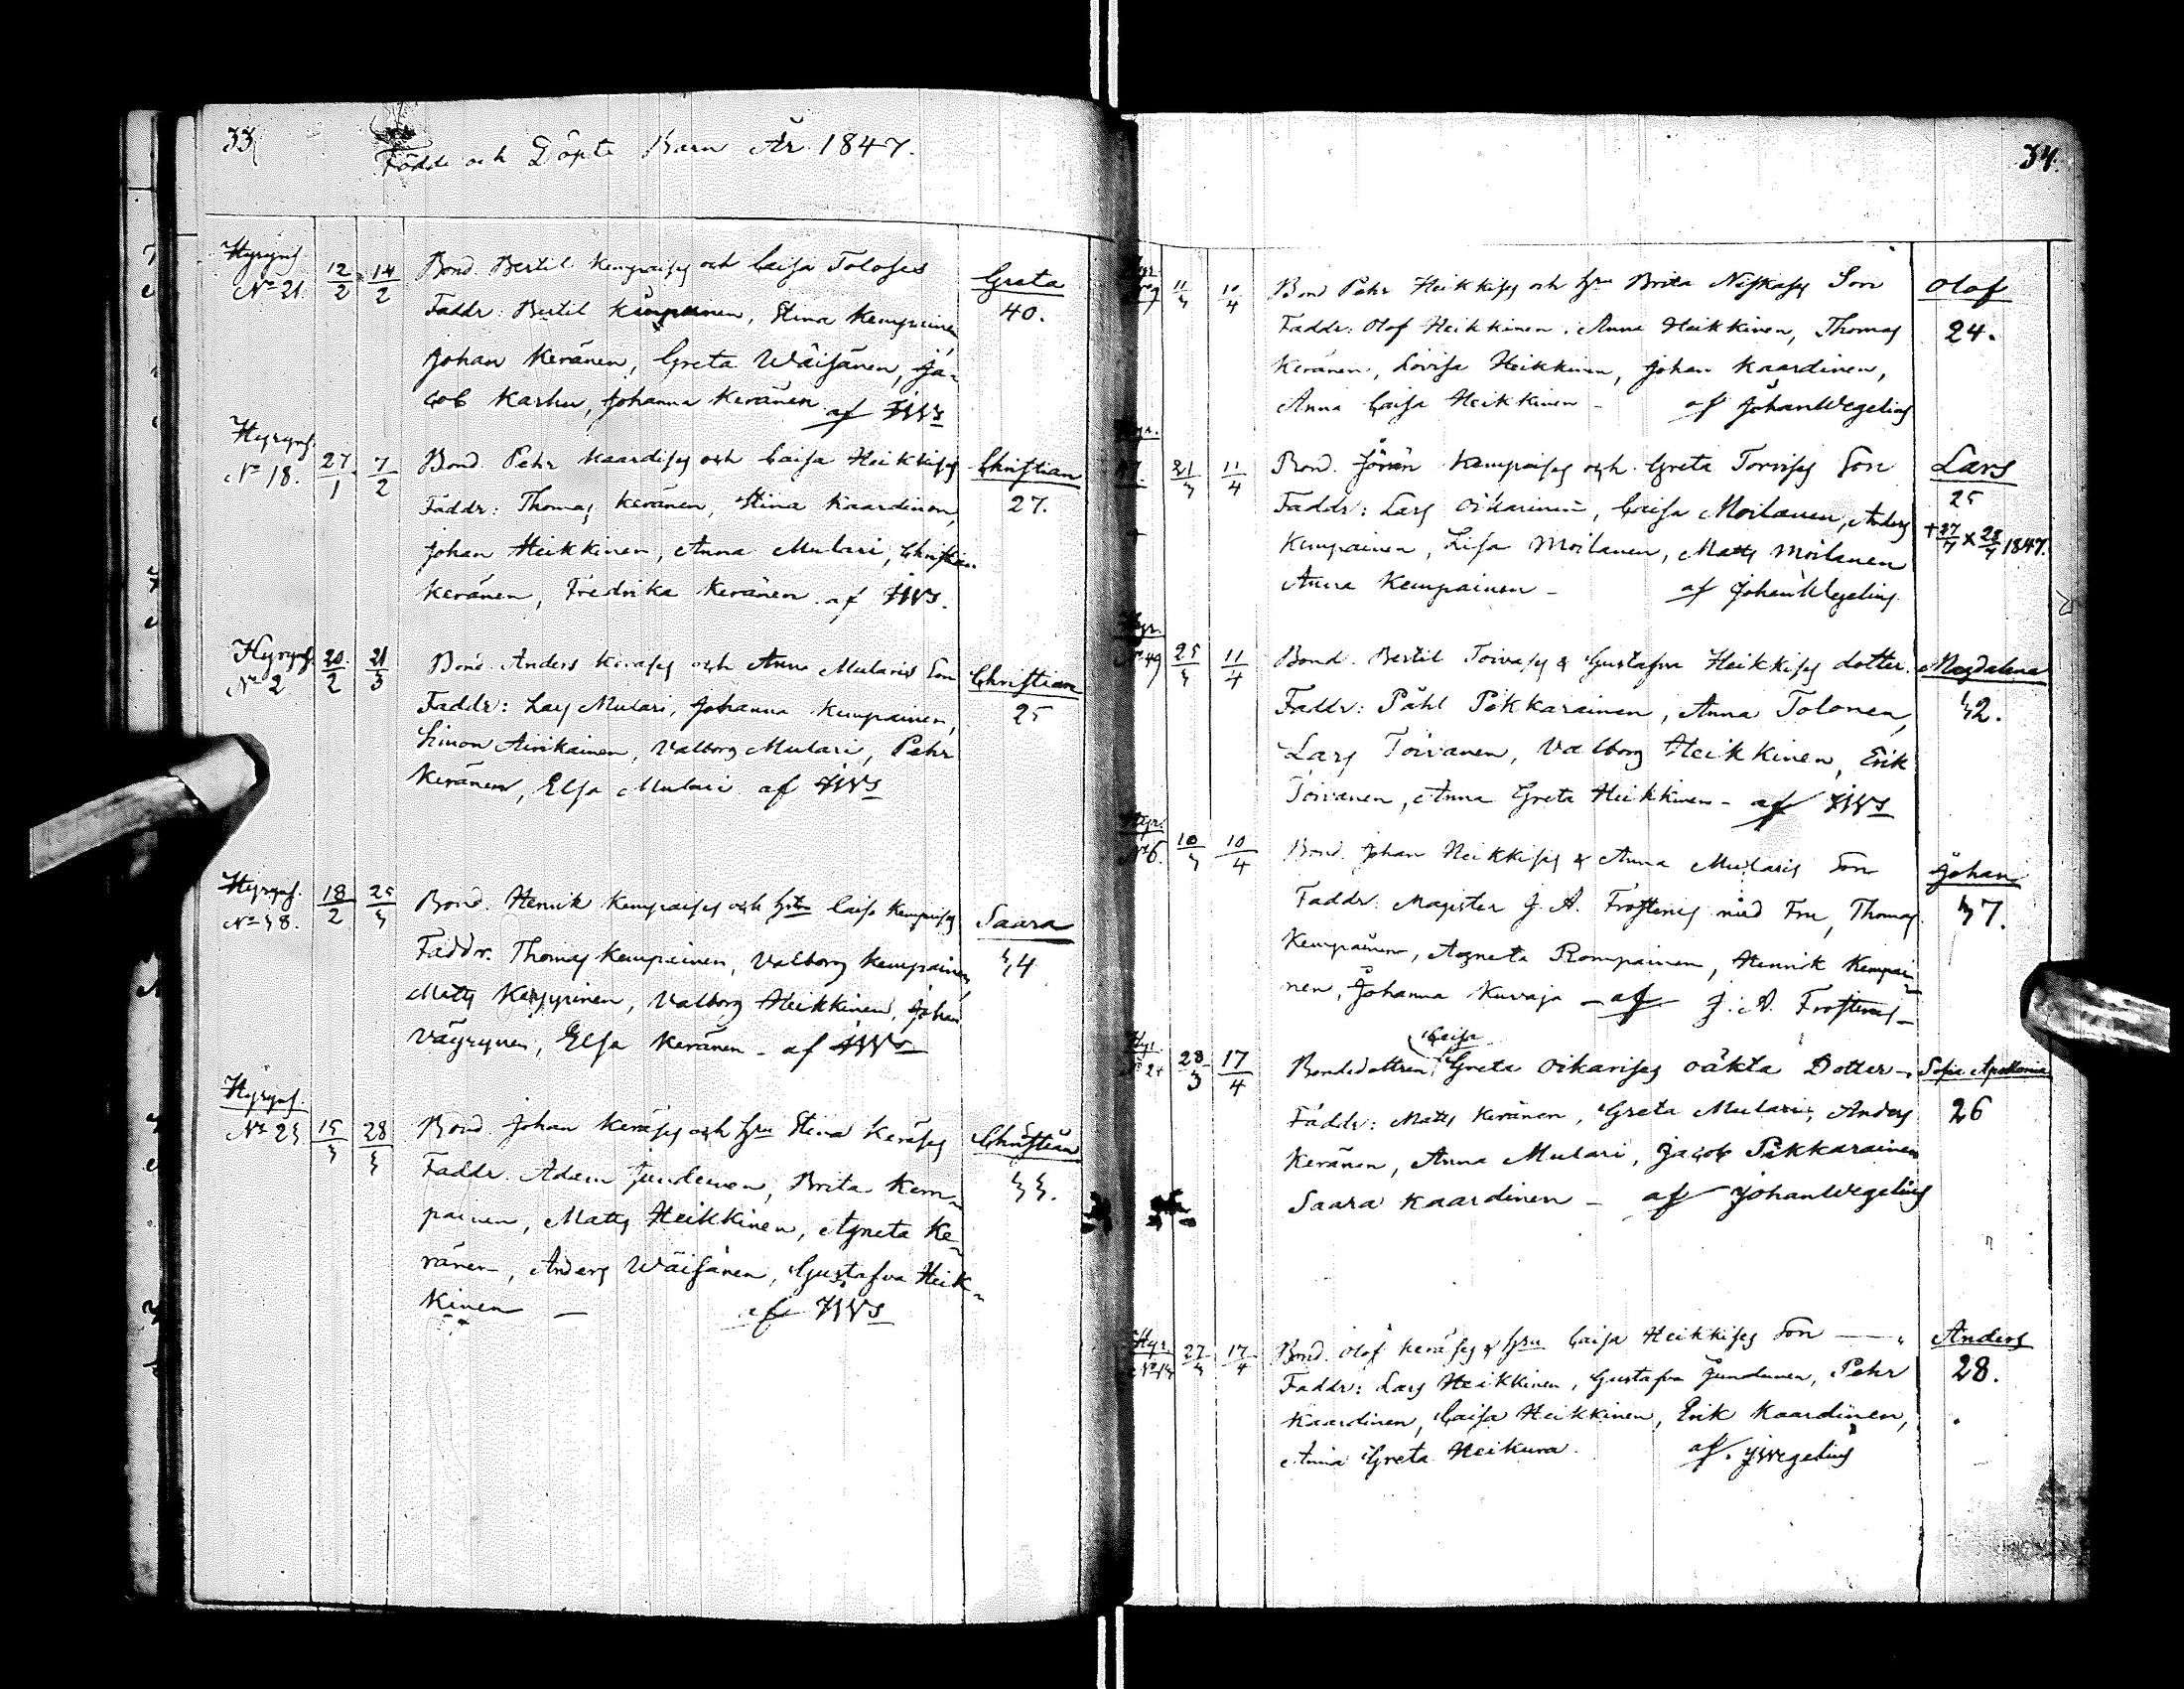 33
Födde och Döpte Barn År 1847.
Hyryns.
No 21.
12/2
14/2
Bond. Bertil Kempaises och Caisa Toloses
Greta
40.
Faddr: Bertil Kempainen, Stina Kempainen
Johan Keränen, Greta Wäisänen, Ja-
cob Karhu, Johanna Keränen af JWs
Hyryns.
No 18.
27/1
7/2
Bond. Pehr Kaardises och Caisa Heikkises
Christian
27.
Faddr: Thomas Keränen, Stina Kaardinen,
Johan Heikkinen, Anna Mulari, Christian
Keränen, Fredrika Keränen af JWs.
Hyryns.
No 2
20/2
21/3
Bond. Anders Keräses och Anna Mularis Son
Christian
25
Faddr: Lars Mulari, Johanna Kempainen,
Simon Airikainen, Valborg Mulari, Pehr
Keränen, Elsa Mulari af JWs
Hyryns.
No 38.
18/2
25/3
Bond. Henrik Kempaises och hstru Caisa Kempaises
Saara
34
Faddr. Thomas Kempainen, Valborg Kempainen,
Matts Kemppinen, Valborg Heikkinen, Johan
Väyrynen, Elsa Keränen - af JWs
Hyryns.
No 23
15/3
28/3
Bond. Johan Keräses och hru Stina Keräses
Christian
33.
Faddr. Adam Juntunen, Brita Kem-
painen, Matts Heikkinen, Agneta Ke-
ränen, Anders Wäisänen, Gustafva Heik-
kinen — af JWs
34.
11/3
10/4
Bond Pehr Heikkises och hru Brita Niskases Son
Olof
24.
Faddr: Olof Heikkinen, Anna Heikkinen, Thomas
Keränen, Lovisa Heikkinen, Johan Kaardinen,
Anna Caisa Heikkinen - af Johan Wegelius
Hyr.
21/3
11/4
Bond. Jöran Kempaises och Greta Torvises Son
Lars
25
+27/4 x 28/4 1847.
Faddr: Lars Oikarinen, Caisa Moilanen, Anders
Kempainen, Lisa Moilanen, Matts Moilanen
Anna Kempainen - af Johan Wegelius.
Hyr.
No 49
25/3
11/4
Bond. Bertil Toivases & Gustafva Heikkises dotter.
Magdalena
32.
Faddr: Påhl Pikkarainen, Anna Tolonen,
Lars Toivanen, Valborg Heikkinen, Erik
Toivanen, Anna Greta Heikkinen - af JWs
Hyr.
No 6.
10/3
10/4
Bond. Johan Heikkises & Anna Mularis Son
Johan
37.
Faddr. Magister J. A. Frosterus med Fru, Thomas
Kempainen, Agneta Rompainen, Henrik Kempai-
nen, Johanna Kuvaja - af J. A. Frosterus -
Hyr.
28/3
17/4
Caisa
Bondedottren Greta Oikarises oäkta Dotter -
Sofia Apollonia
26
Faddr: Matts Keränen, Greta Mulari, Anders
Keränen, Anna Mulari, Jacob Pikkarainen
Saara Kaardinen - af Johan Wegelius
Hyr.
27/3
17/4
Bond. Olof Keräses & hru Caisa Heikkises Son —
Anders
28.
Faddr: Lars Heikkinen, Gustafva Juntunen, Pehr
Kaardinen, Caisa Heikkinen, Erik Kaardinen,
Anna Greta Heikura. af. JWegelius